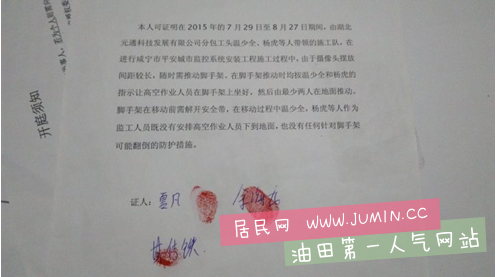 本人可证明在 2015 年的 7 月 29 日至 8 月 27 日期间，由湖北
元通科技发展有限公司分包工头温少全、杨虎等人带领的施工队，在
进行咸宁市平安城市监控系统安装工程施工过程中，由于摄像头摆放
间距较长，随时需推动脚手架，在脚手架推动时均按温少全和杨虎的
指示让高空作业人员在脚手架上坐好，然后由最少两人在地面推动，
脚手架在移动前需解开安全带，在移动过程中温少全、杨虎等人作为
监工人员既没有安排高空作业人员下到地面，也没有任何针对脚手架
可能翻倒的防护措施。
证人：
开庭须知
居民网 WWW.JUMIN.CC
油田第一人气网站